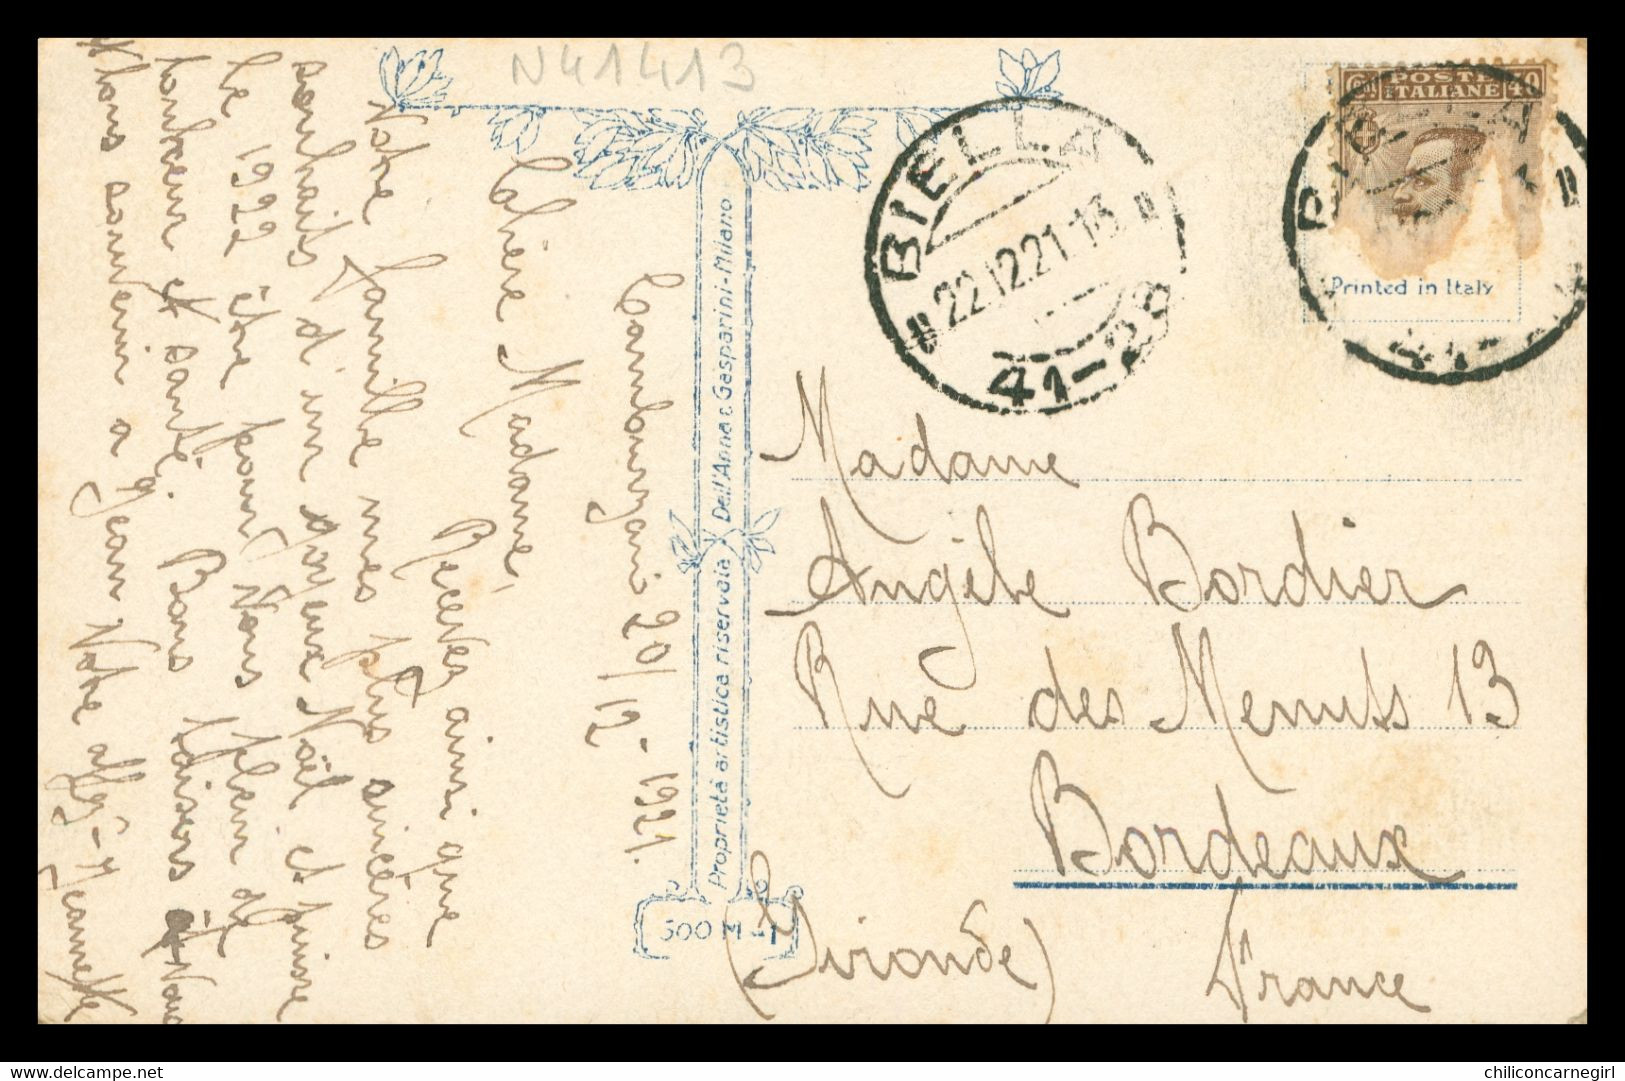 N41413
Camburzano 20/12-1921.
Chère Madame,
Recevez ainsi que
Votre famille mes plus sincères
souhaits d'un joyeux Noël et puisse
le 1922 être pour Vous plein de
bonheur et santé. Bons baisers à Vous
bons souvenir a Jean Votre aff. Jeannette
Proprietà artistica riservata Dell'Anna e Gasparini-Milano
500 M-1
BIELLA
22.12.21.13
41-28
POSTE
ITALIANE
40
Printed in Italy
Madame
Angèle Bordier
Rue des Menuts 13
Bordeaux
(Gironde) France
https://www.delcampe.net
chiliconcarnegirl